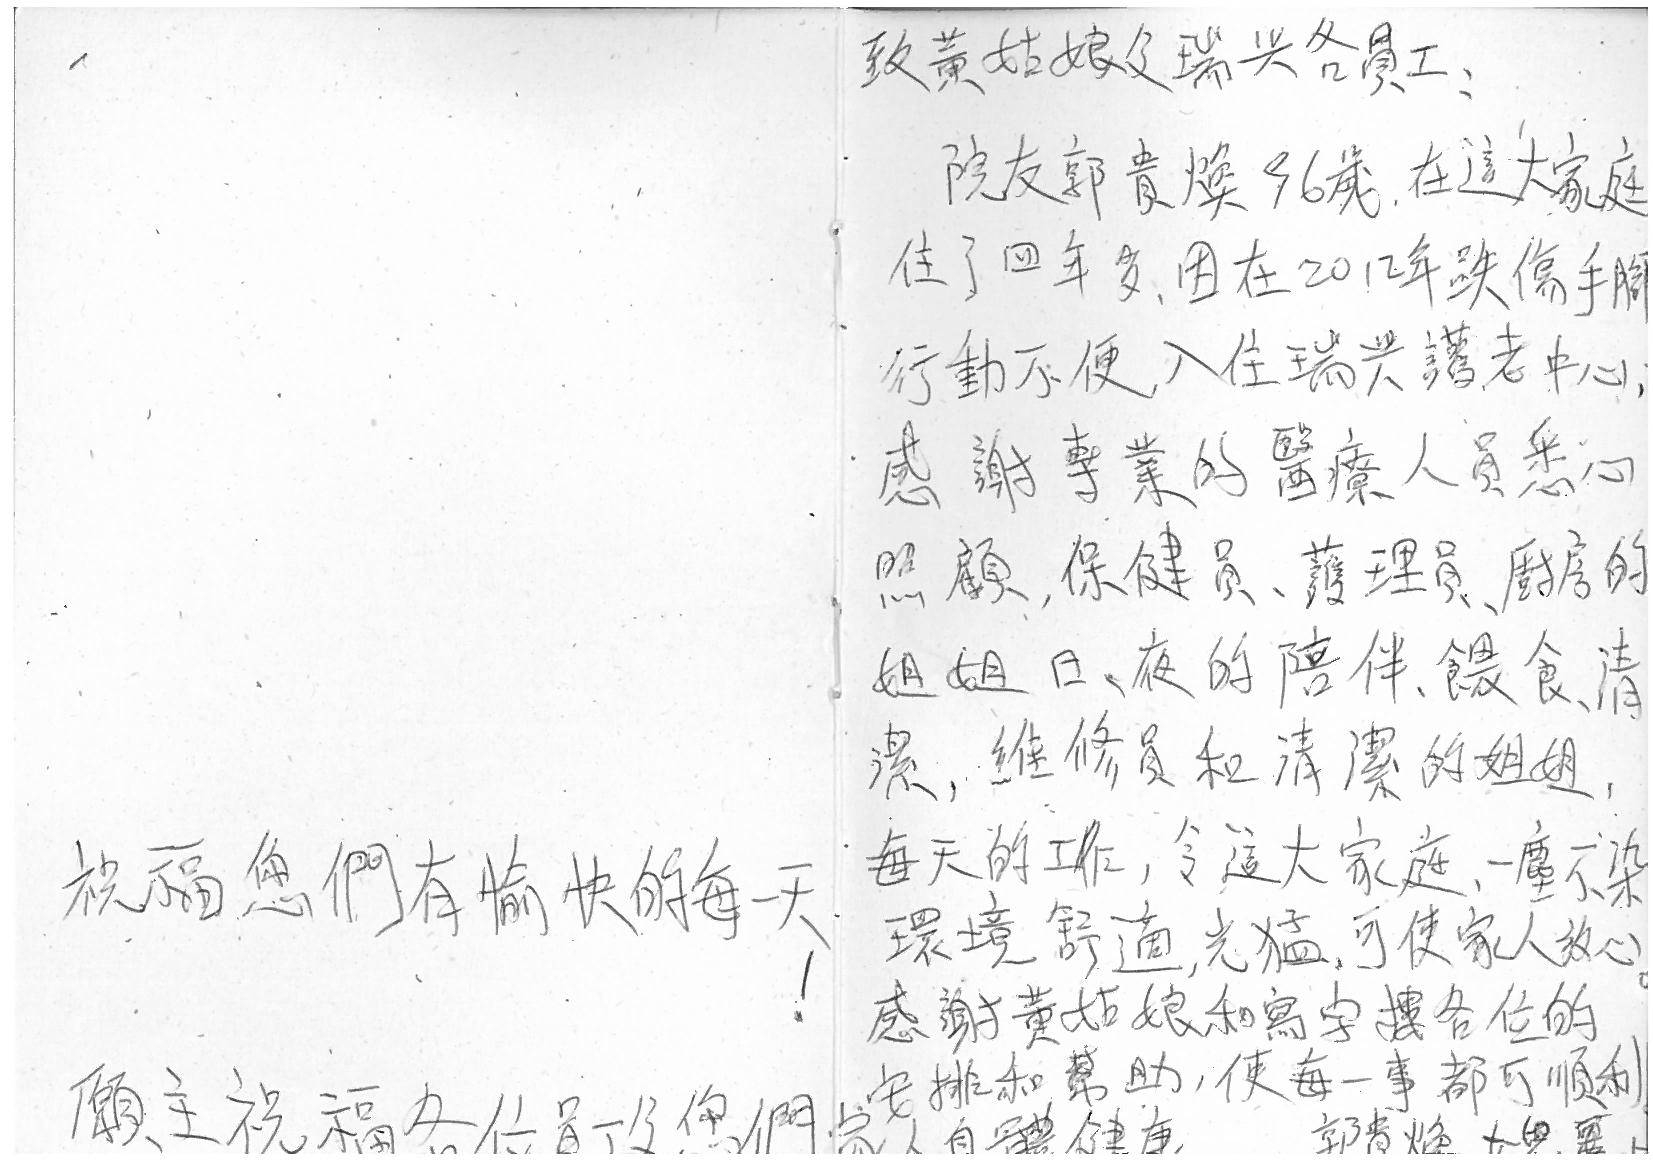 致黃姑娘及瑞兴各員工、
院友郭貴煥96歲,在這大家庭
住了四年多,因在2012年跌傷手腳
行動不便,入住瑞兴護老中心,
感謝專業的醫療人員悉心
照顧,保健員、護理員、廚房的
姐姐日、夜的陪伴、餵食、清
潔,維修員和清潔的姐姐,
每天的工作,令這大家庭,一塵不染
環境舒適,光猛,可使家人放心。
感謝黃姑娘和寫字樓各位的
安排和幫助,使每一事都可順利
郭貴煥 女兒
祝福您們有愉快的每一天!
願主祝福各位員工及您們家人身體健康